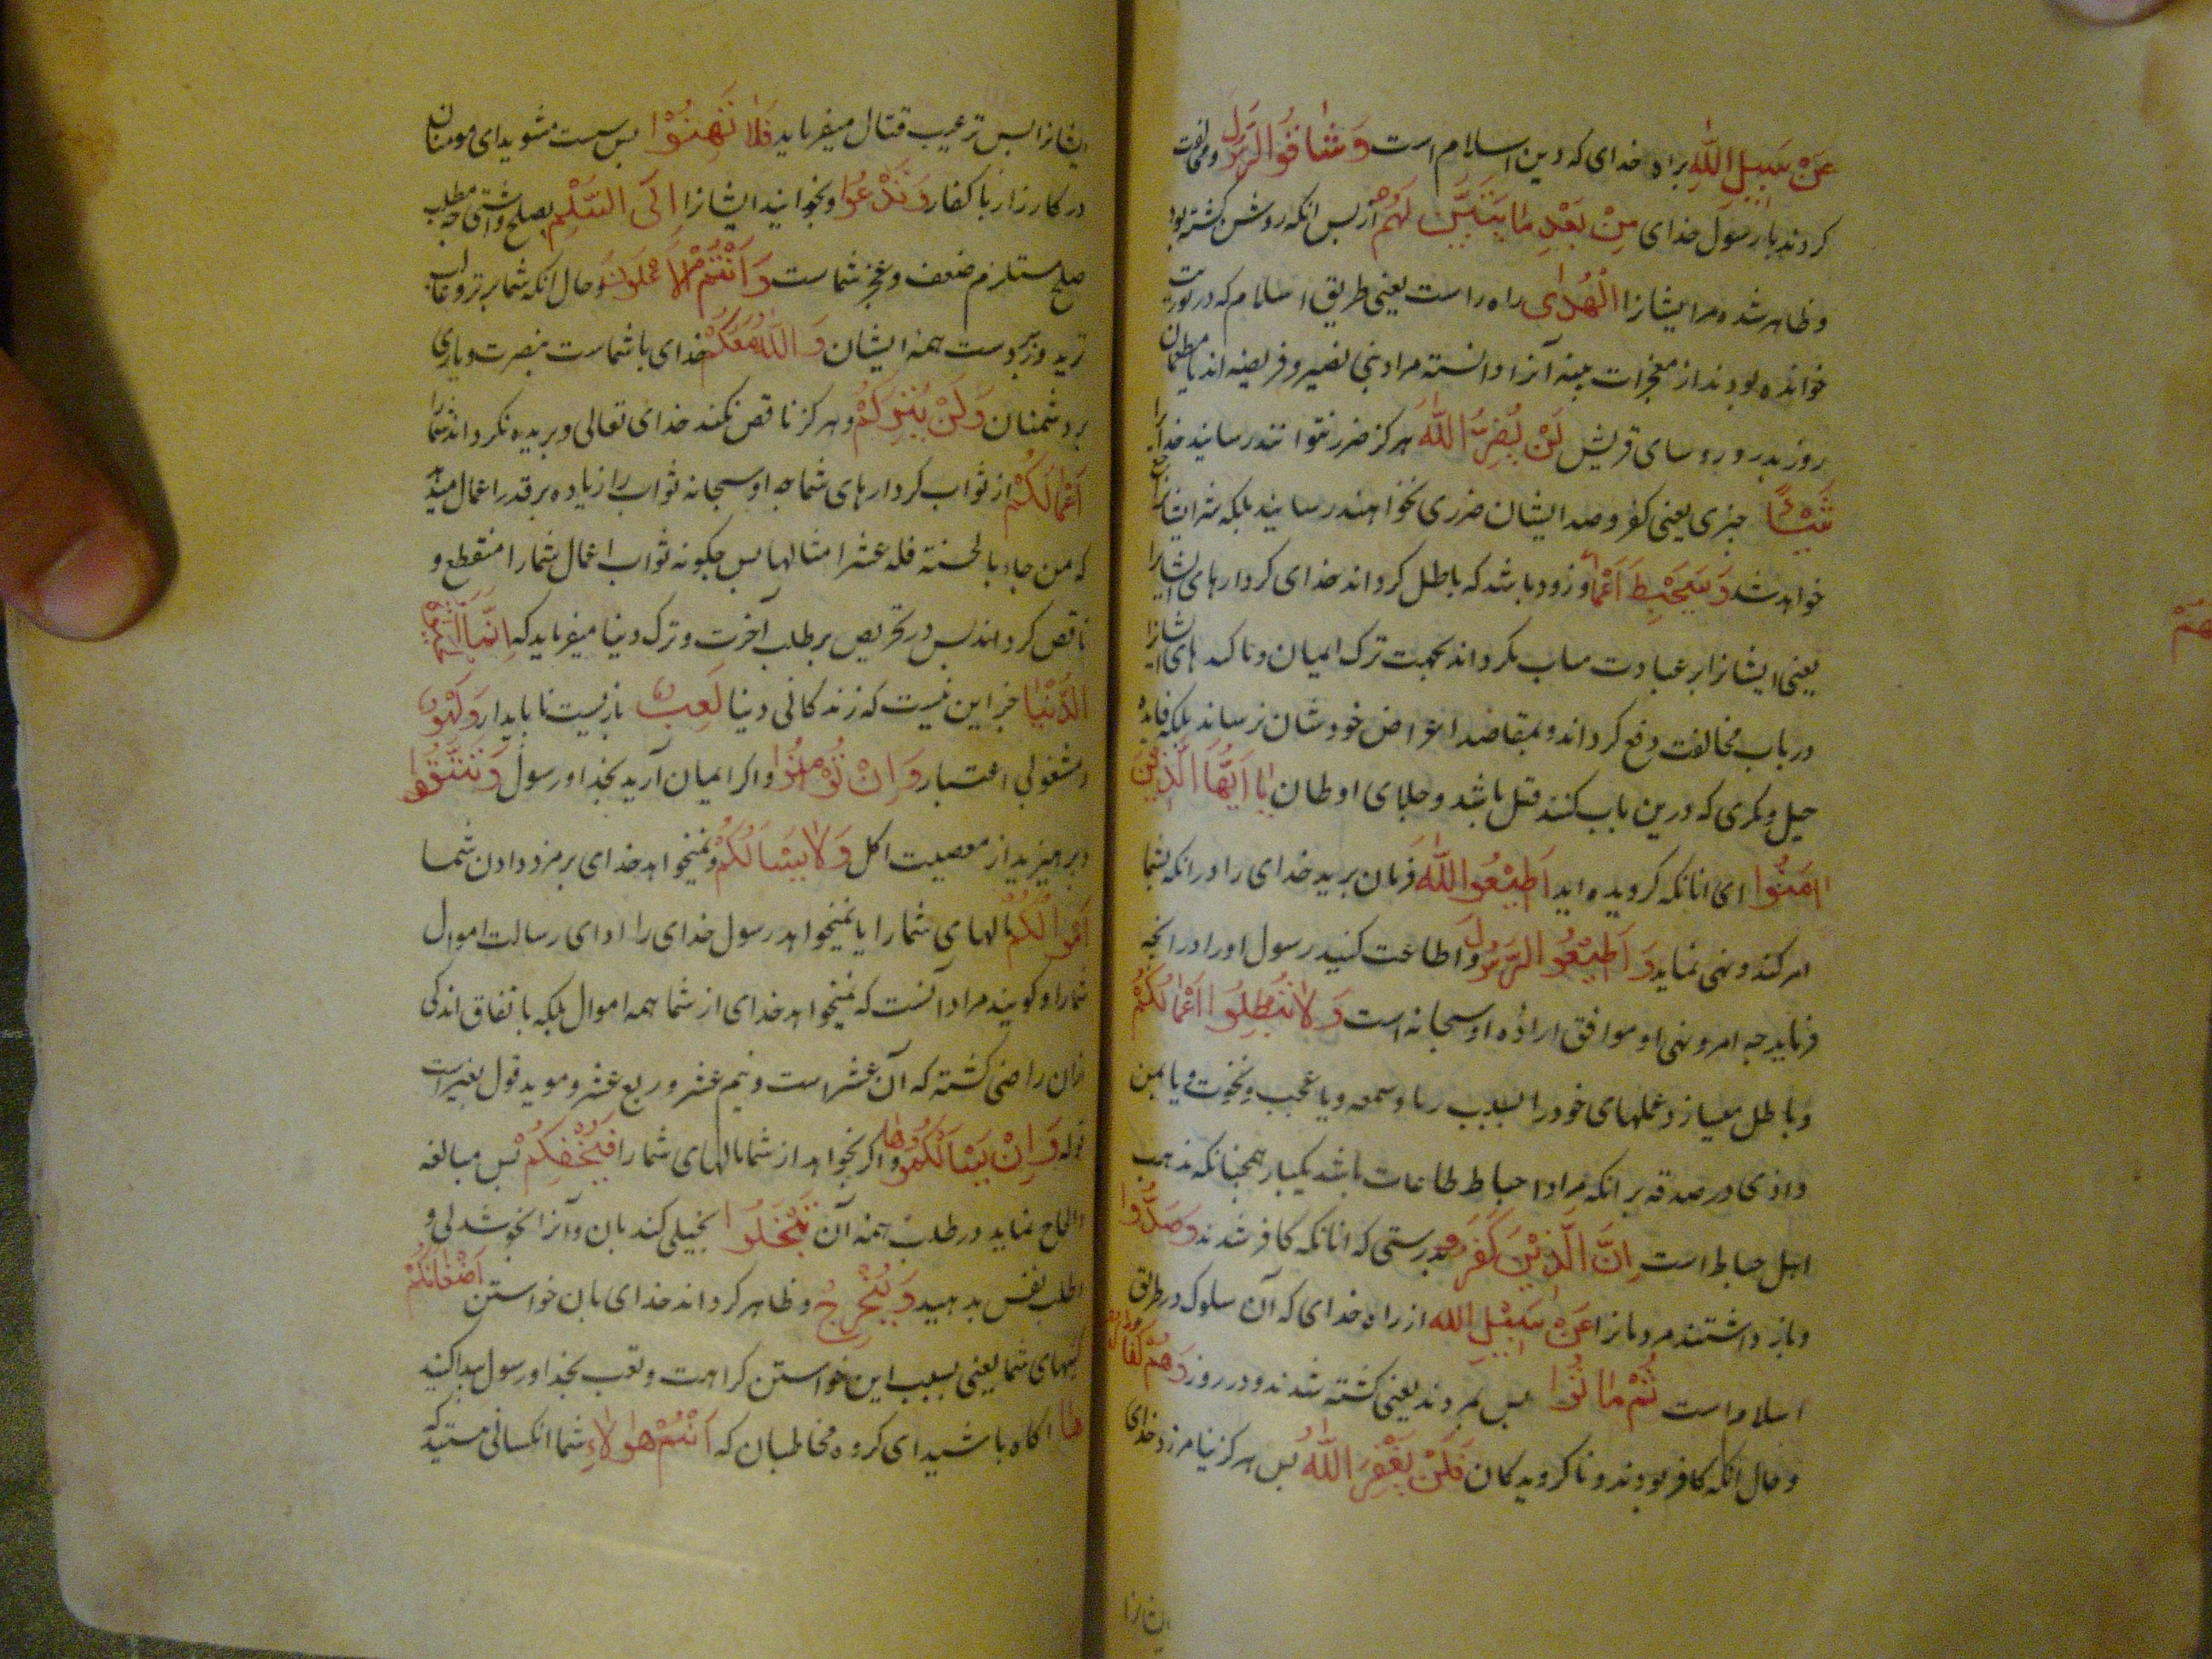 عَنْ سَبِيلِ اللّٰهِ براه خدای که دین اسلام است وَشَاقُّوا الرَّسُولَ ومخالفت
کردند با رسول خدای مِنْ بَعْدِ مَا تَبَيَّنَ لَهُمُ از پس انکه روشن کشته بود
وظاهر شده مر ایشانرا الْهُدٰى راه راست یعنی طریق اسلام که در توریت
خوانده بودند از معجزات بینه آنرا دانسته مراد بنی نضیر و قریضه اند یا مطعمان
روز بدر و روسای قریش لَنْ يَضُرُّوا اللّٰهَ هرکز ضرر نتوانند رسانید خدایرا
شَيْئًا چیزی یعنی کفر وصد ایشان ضرری نخواهند رسانید بلکه شر ایشان راجع
خواهد شد وَسَيُحْبِطُ اَعْمَالَهُمْ وزود باشد که باطل کرداند خدای کردارهای ایشانرا
یعنی ایشانرا بر عبادت مثاب نکرداند بجهت ترک ایمان و ایشانرا
در باب مخالفت دفع کرداند وبمقاصد اغراض خودشان نرساند بلکه فایده
حیل ومکری که درین باب کنند قتل باشد وجلای اوطان يَا اَيُّهَا الَّذِيْنَ
اٰمَنُوْا ای انانکه کرویده اید اَطِيْعُوا اللّٰهَ فرمان برید خدای را در انکه شما
امر کند ونهی نماید وَ اَطِيْعُوا الرَّسُولَ واطاعت کنید رسول اورا در انچه
فرماید چه امر ونهی او موافق اراده او سبحانه است وَلَا تُبْطِلُوا اَعْمَالَكُمْ
وباطل مسازید عملهای خود را بسبب ریا وسمعه ویا عجب ونخوت ویا بمن
واذی در صدقه بر انکه مراد احباط طاعات باشد یکبار همچنانکه مذهب
اهل حباط است اِنَّ الَّذِيْنَ كَفَرُوا بدرستی که انانکه کافر شدند وَصَدُّوا
وباز داشتند مردمانرا عَنْ سَبِيْلِ اللّٰه از راه خدای که آن سلوک در طریق
اسلام است ثُمَّ مَاتُوا پس بمردند یعنی کشته شدند در روز بدر وَهُمْ كُفَّارٌ
وحال انکه کافر بودند وناکرویدکان فَلَنْ يَغْفِرَ اللّٰهُ پس هرکز نیامرزد خدای
ایشانرا
ایشانرا پس ترغیب قتال میفرماید فَلَا تَهِنُوْا پس سست مشوید ای مومنان
در کارزار با کفار وَتَدْعُوا ونخوانید ایشانرا اِلَى السَّلْمِ بصلح واشتی چه طلب
صلح مستلزم ضعف وعجز شماست وَاَنْتُمُ الْاَعْلَوْنَ وحال انکه شما برتر وغالب
ترید وزبردست همه ایشان وَاللّٰهُ مَعَكُمْ خدای با شماست بنصرت ویاری
بر دشمنان وَلَنْ يَتِرَكُمْ وهرکز ناقص نکند خدای تعالی وبریده نکرداند شما را
اَعْمَالَكُمْ از ثواب کردارهای شما چه او سبحانه ثواب را زیاده بر قدر اعمال میدهد
که من جاء بالحسنة فله عشر امثالها پس چکونه ثواب اعمال شما را منقطع و
ناقص کرداند پس در تحریص بر طلب آخرت وترک دنیا میفرماید که اِنَّمَا الْحَيٰوةُ
الدُّنْيَا جز این نیست که زندکانی دنیا لَعِبٌ بازیست ناپایدار وَلَهْوٌ
ومشغولی اعتبار وَاِنْ تُؤْمِنُوا واکر ایمان آرید بخدا ورسول وَتَتَّقُوا
وبرهیزید از معصیت اکل وَلَا يَسْأَلْكُمْ ونمیخواهد خدای بر مزد دادن شما
اَمْوَالَكُمْ مالهای شما را یا نمیخواهد رسول خدای را ادای رسالت اموال
شما را وکویند مراد آنست که نمیخواهد خدای از شما همه اموال بلکه باتفاق اندکی
ازان راضی کشته که آن عشر است ونیم عشر وربع عشر وموید قول بغیر است
قوله وَاِنْ يَسْأَلْكُمُوهَا واکر بخواهد از شما مالهای شما را فَيُحْفِكُمْ پس مبالغه
والحاح نماید در طلب همه آن تَبْخَلُوا بخیلی کنید بان وآنرا بخوشدلی و
طلب نفس بدهید وَيُخْرِجْ وظاهر کرداند خدای بان خواستن اَضْغَانَكُمْ
کینهای شما یعنی بسبب این خواستن کراهت وتعب بخدا ورسول پیدا کنید
هَا اکاه باشید ای کروه مخاطبان که اَنْتُمْ هٰؤُلَاءِ شما انکسانی هستید که